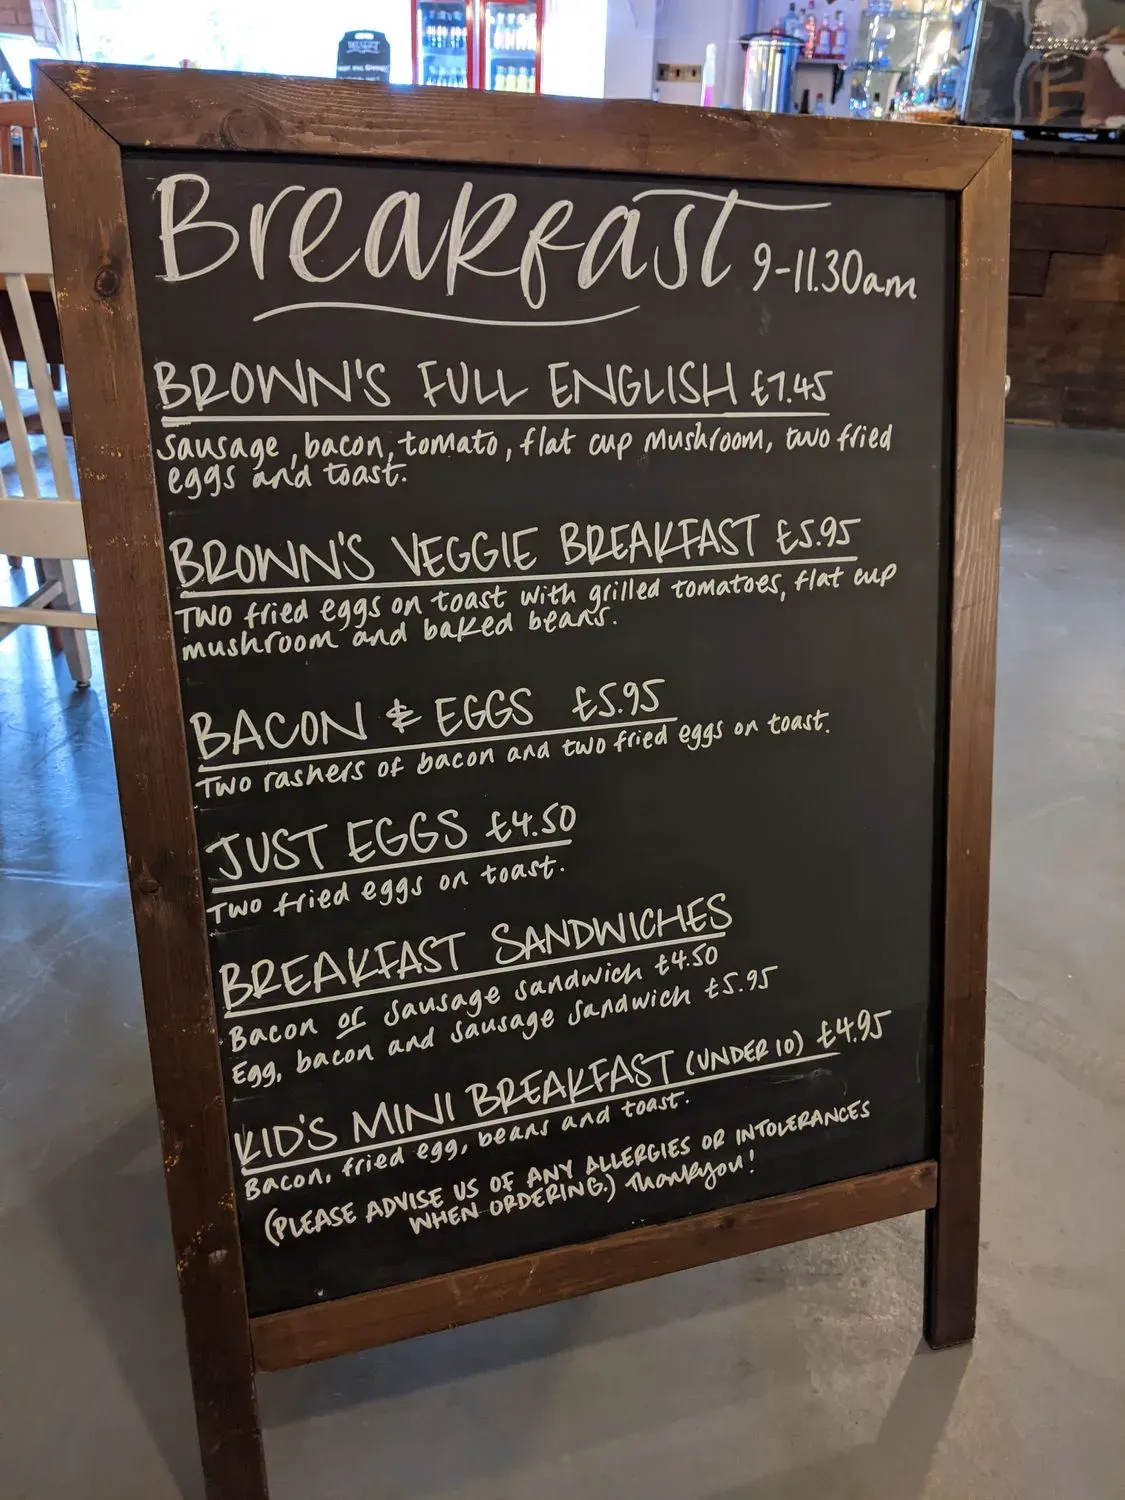 Breakfast 9-11.30am
BROWN'S FULL ENGLISH £7.45
Sausage, bacon, tomato, flat cup mushroom, two fried
eggs and toast.
BROWN'S VEGGIE BREAKFAST £5.95
Two fried eggs on toast with grilled tomatoes, flat cup
mushroom and baked beans.
BACON & EGGS £5.95
Two rashers of bacon and two fried eggs on toast.
JUST EGGS £4.50
Two fried eggs on toast.
BREAKFAST SANDWICHES
Bacon or sausage sandwich £4.50
Egg, bacon and sausage sandwich £5.95
KID'S MINI BREAKFAST (UNDER 10) £4.95
Bacon, fried egg, beans and toast.
(PLEASE ADVISE US OF ANY ALLERGIES OR INTOLERANCES
WHEN ORDERING.) Thankyou!